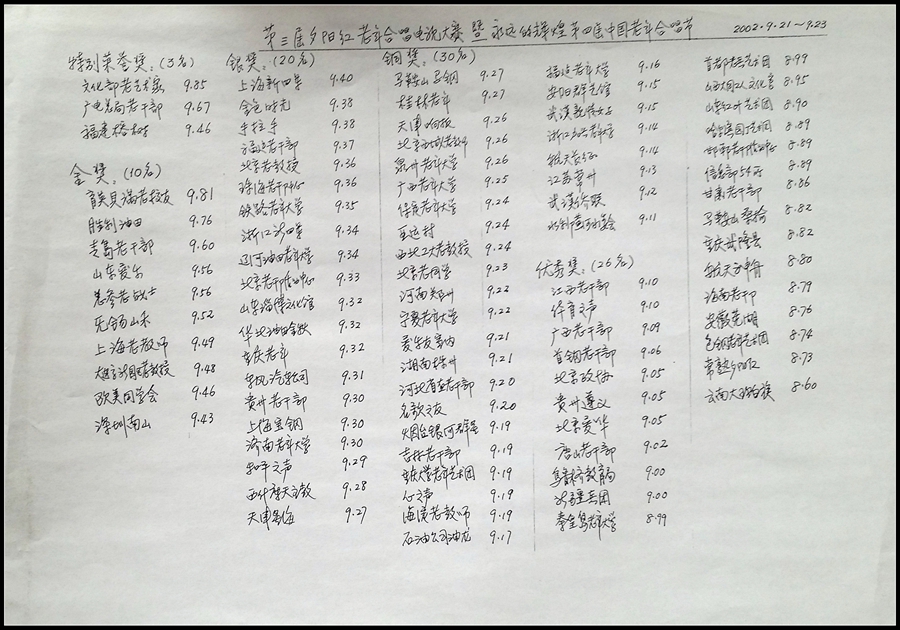 第三届夕阳红老年合唱电视大赛暨永远的辉煌第四届中国老年合唱节 2002.9.21~9.23
特别荣誉奖：(3名)
文化部老艺术家 9.85
广电总局老干部 9.67
福建榕树 9.46
金奖：(10名)
育英贝满老校友 9.81
胜利油田 9.76
青岛老干部 9.60
山东爱乐 9.56
总参老战士 9.56
无锡山禾 9.52
上海老教师 9.49
教授 9.48
欧美同学会 9.46
深圳南山 9.43
银奖：(20名)
上海新四军 9.40
金色时光 9.38
手拉手 9.38
福建老干部 9.37
北京老教授 9.36
珠海老干中心 9.36
铁路老年大学 9.35
浙江 9.34
辽河油田老年大学 9.34
北京老干部活动中心 9.33
山东淄博文化馆 9.32
华北油田 9.32
重庆老年 9.32
东风汽车公司 9.31
贵州老干部 9.30
上海宝钢 9.30
济南老年大学 9.30
和平之声 9.29
9.28
天津 9.27
铜奖：(30名)
马鞍山马钢 9.27
桂林老年 9.27
天津 9.26
北京西城老教师 9.26
泉州老年大学 9.26
广西老年大学 9.25
保定老年大学 9.24
亚运村 9.24
西北工大老教授 9.24
北京老同学 9.23
河南郑州 9.22
宁夏老年大学 9.22
爱乐友 9.21
湖南株州 9.21
河北省直老干部 9.20
名歌之友 9.20
烟台银河 9.19
吉林老干部 9.19
重庆大学老年艺术团 9.19
心之声 9.19
海淀老教师 9.19
石油公司油龙 9.17
福建老年大学 9.16
安阳群艺馆 9.15
武汉 9.15
浙江 9.14
航天 9.14
江苏常州 9.13
武汉 9.12
水利 9.11
优秀奖：(26名)
江西老干部 9.10
体育之声 9.10
广西老干部 9.09
首钢老干部 9.06
北京 9.05
贵州遵义 9.05
北京爱华 9.05
唐山老干部 9.02
阜新教育局 9.00
9.00
秦皇岛老年大学 8.99
首都老艺术团 8.99
山西 8.95
8.90
哈尔滨 8.89
邯郸老干部活动中心 8.89
信息部54所 8.89
甘肃老干部 8.86
马鞍山 8.82
重庆武隆县 8.82
航天方舟 8.80
海南老干部 8.79
安徽芜湖 8.76
老年艺术团 8.74
常熟夕阳红 8.73
云南大理白族 8.60